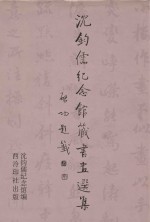 沈钧儒纪念馆藏书画选集
启功题签
沈钧儒纪念馆编
西泠印社出版